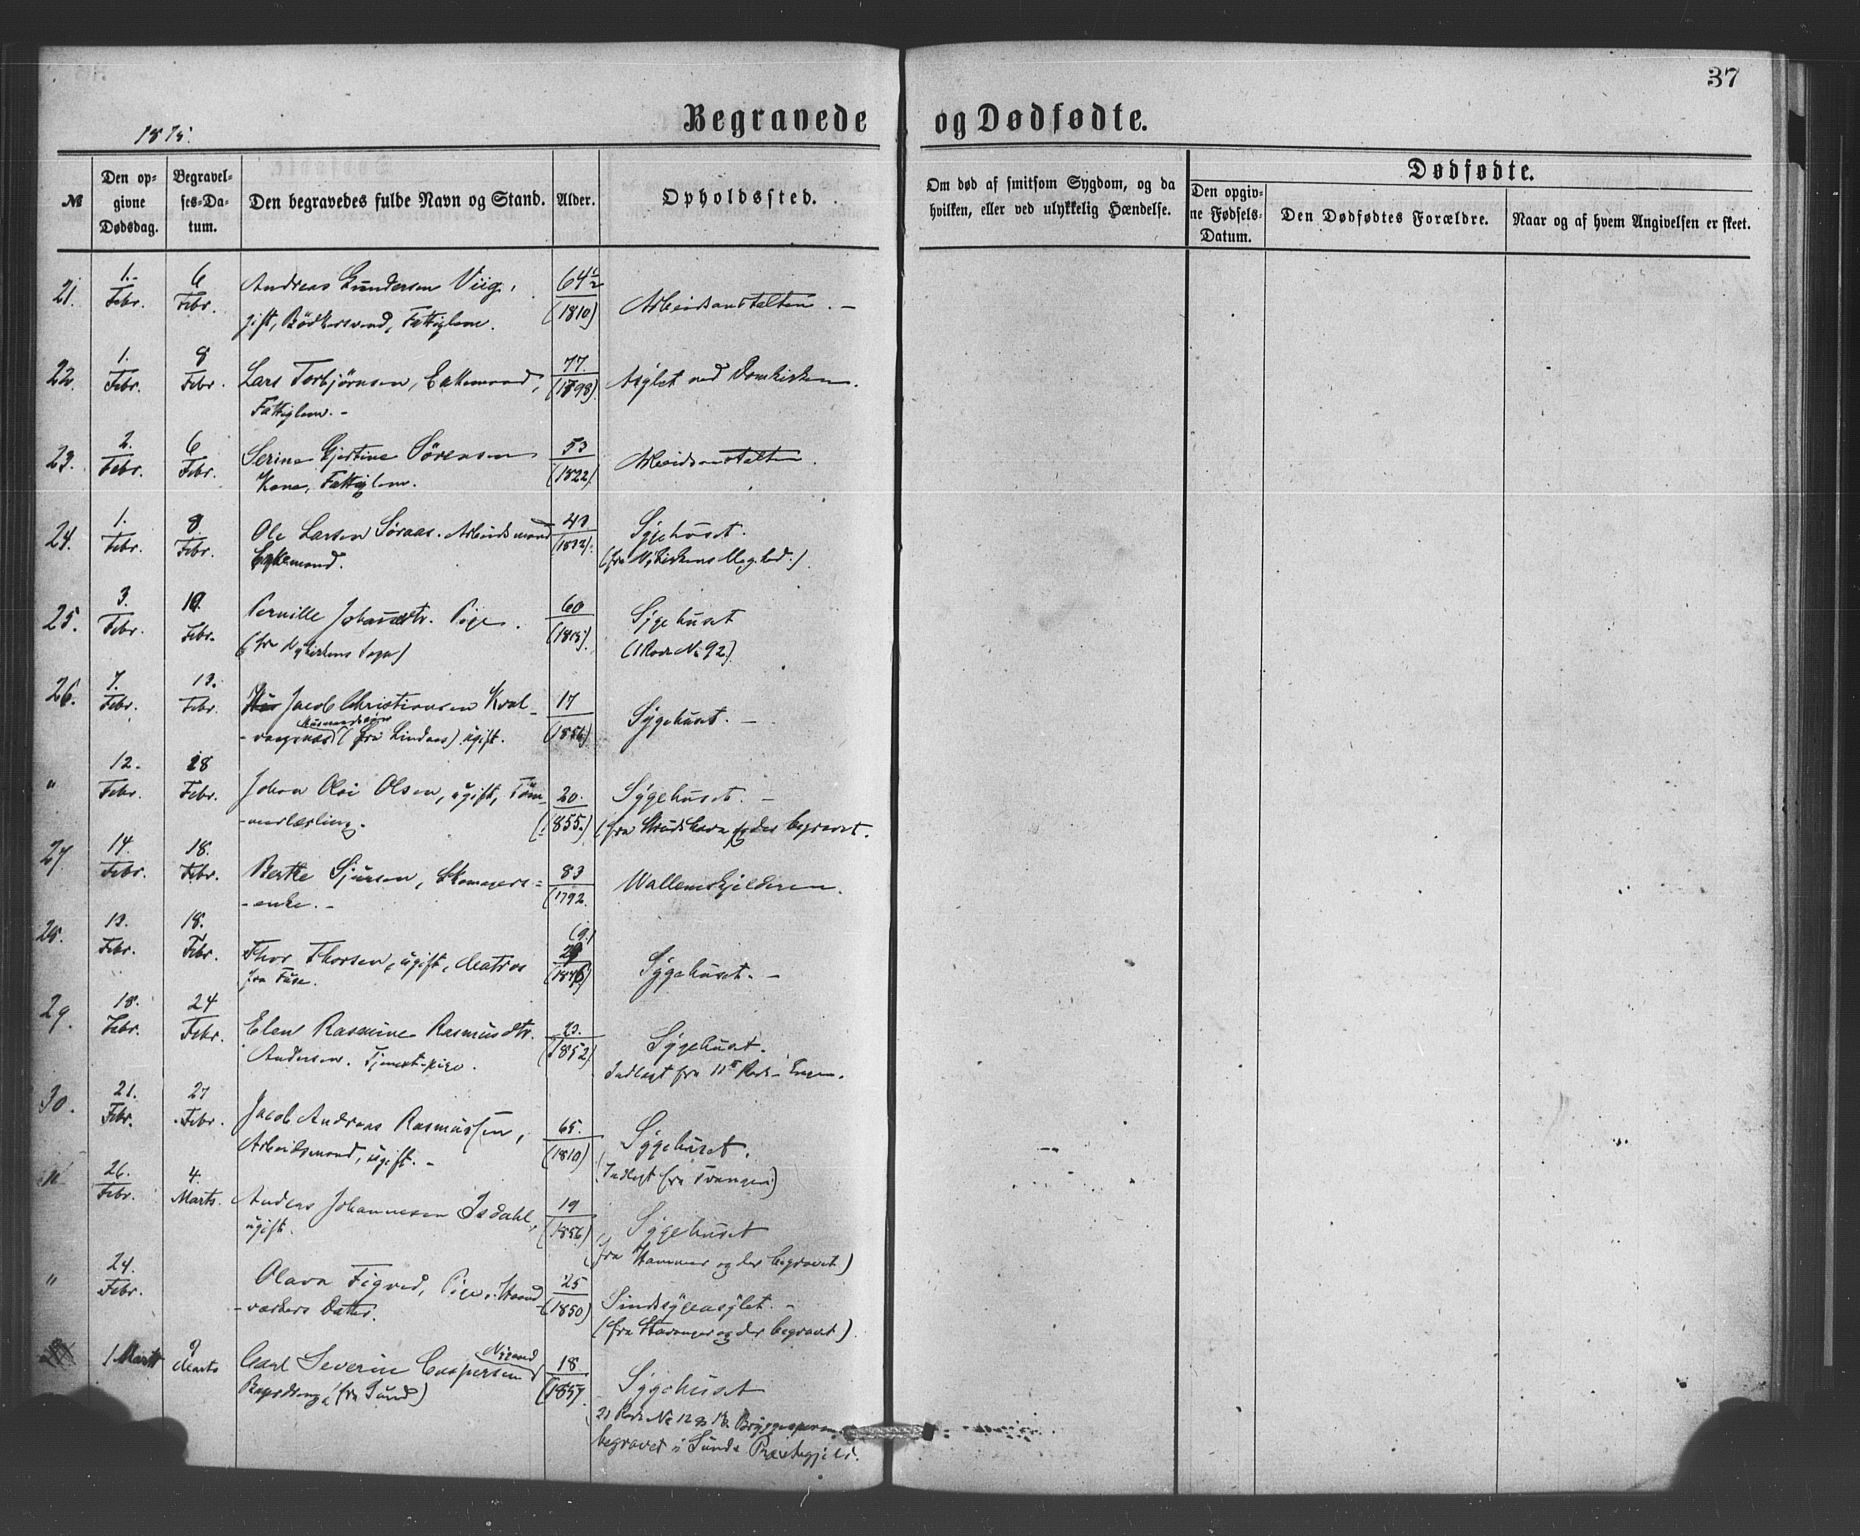 37
Begravede og Dødfødte.
1875.
№
Den opgivne Dødsdag.
Begravelses-Datum.
Den begravedes fulde Navn og Stand.
Alder.
Opholdssted.
Om død af smitsom Sygdom, og da hvilken, eller ved ulykkelig Hændelse.
Dødfødte.
Den opgivne Fødsels-Datum.
Den Dødfødtes Forældre.
Naar og af hvem Angivelsen er skeet.
21. 1. Febr. 6 Febr. Andreas Gundersen Viig, 64½ (1810) Arbeidsanstalten. -
gift, Bødkersvend, Fattiglem.
22. 1. Febr. 8 Febr. Lars Torbjørnsen, Enkemand, 77 (1898) Asylet ved Domkirken.
Fattiglem. -
23. 2. Febr. 6 Febr. Serine Gjertine Sørensen 53 (1822) Arbeidsanstalten.
Kone, Fattiglem.
24. 1. Febr. 8 Febr. Ole Larsen Søraas. Arbeidsmand 43 (1832) Sygehuset.
Enkemand. (fra Nykirkens Meghed.)
25. 3. Febr. 10. Febr. Pernille Johansdtr. Pige. 60 (1815) Sygehuset
(fra Nykirkens Sogn) (1 Rode No 92)
26. 7. Febr. 13. Febr. Jacob Christiansen Kval- 17 (1856) Sygehuset. -
-vaagnæs Husmandssøn (fra Lindaas) ugift.
" 12. Febr. 18 Febr. Johan Olai Olsen, ugift, Töm- 20. (1855.) Sygehuset. -
-merlærling. (fra Strudshavn og der begravet.
27 14. Febr. 18. Febr. Berthe Sjursen, Skomagers- 83 (1792. Wallemskjelderen.
-enke. -
28. 13. Febr. 18. Febr. Thor Thorsen, ugift, Matros 29 (1846) Sygehuset. -
fra Fuse.
29. 18. Febr. 24 Febr. Elen Rasmine Rasmusdtr. 23. (1852) Sygehuset.
Andersen. Tjenestpige. Indlagt fra 11te Rode - Engen.
30. 21. Febr. 27 Febr. Jacob Andreas Rasmussen, 65. (1810) Sygehuset.
Arbeidsmand, ugift. - (Indlagt fra Svangen)
" 26. Febr. 4. Marts. Anders Johannesen Isdahl, 19 (1856) Sygehuset
ugift. (fra Hammer og der begravet)
" 24. Febr. Olava Tigved, Pige, Haand- 25 (1850) Sindssygeasylet. -
-værkers Datter. (fra Stavanger og der begravet)
1 Marts 9 Marts Carl Severin Caspersen 18 (1857 Sygehuset
(fra Sund) 21 Rode No 12
begravet i Sunds Præstegjeld.